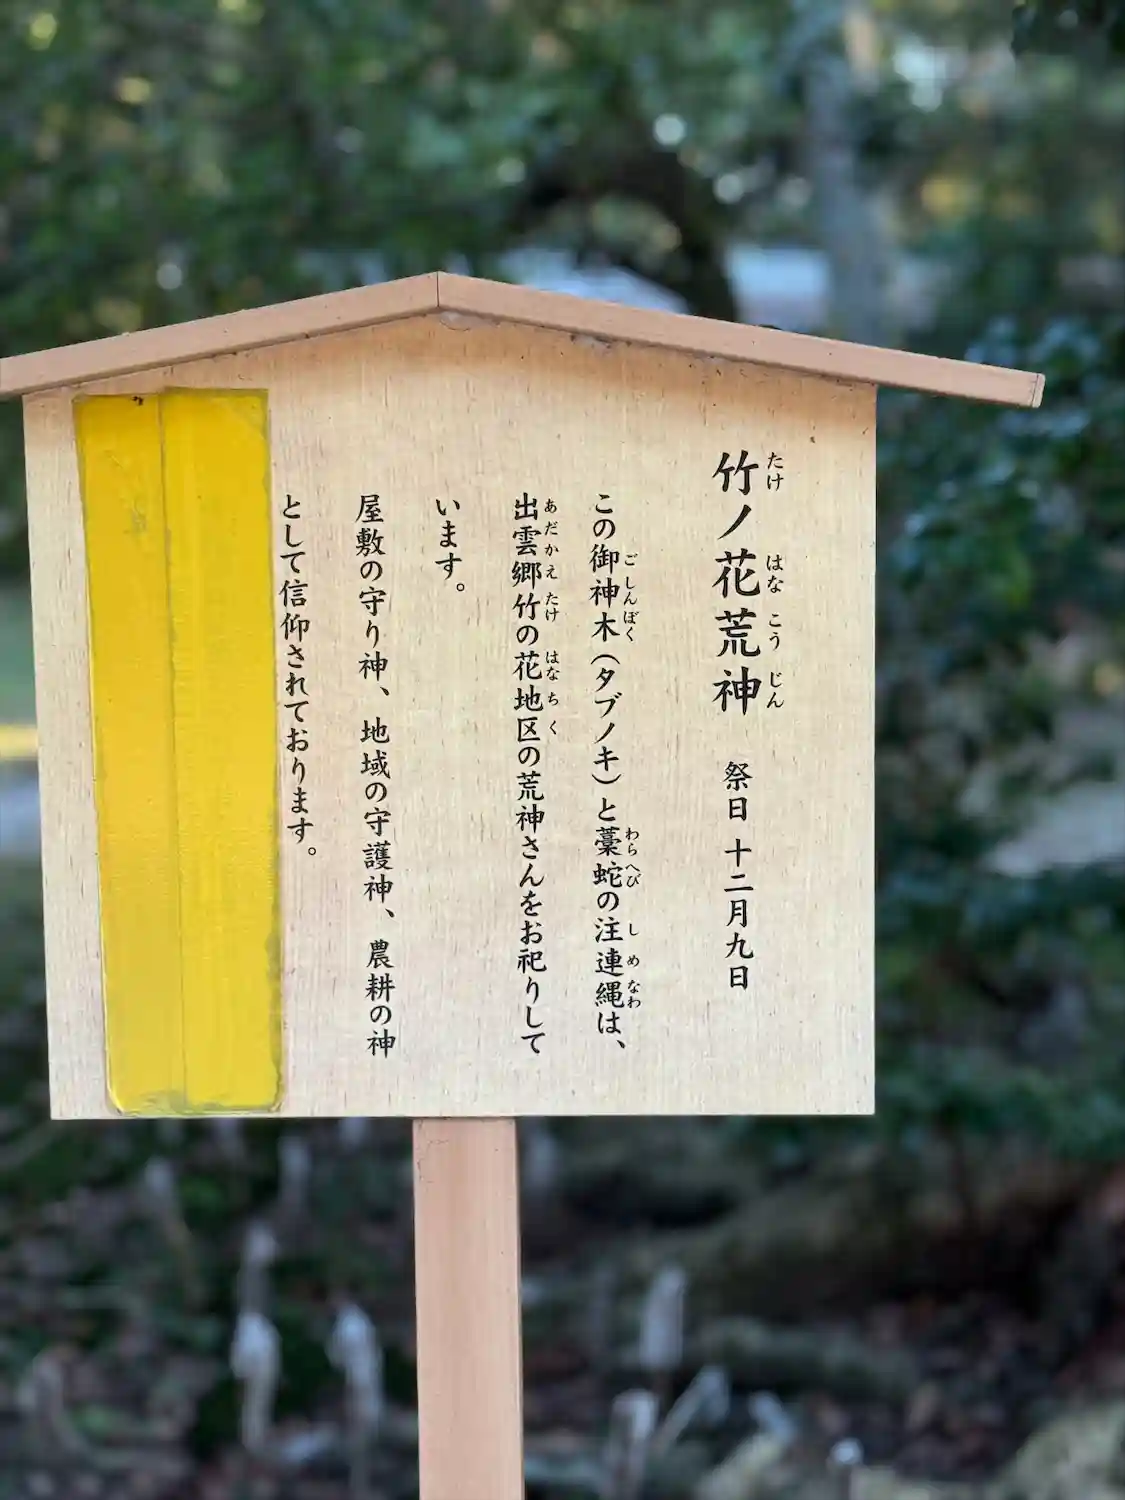 竹ノ花荒神 祭日 十二月九日
たけ はな こう じん
この御神木(タブノキ)と藁蛇の注連縄は、
ごしんぼく わらへび しめなわ
出雲郷竹の花地区の荒神さんをお祀りして
あだかえ たけ はな ちく
います。
屋敷の守り神、地域の守護神、農耕の神
として信仰されております。